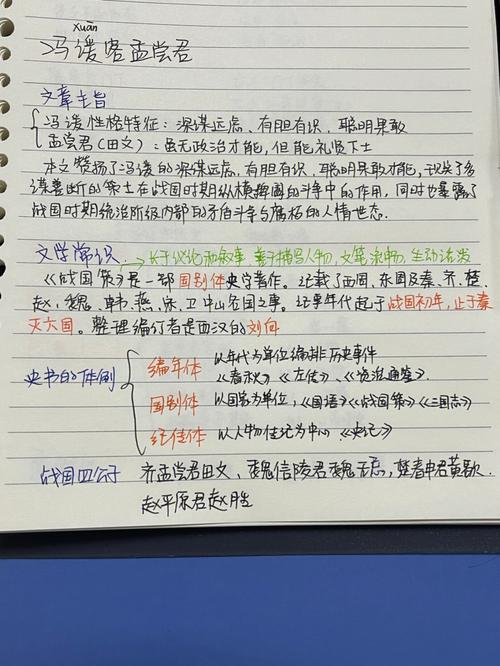 xuān
冯谖客孟尝君
文章主旨
冯谖性格特征：深谋远虑，有胆有识，聪明果敢
孟尝君（田文）：虽无政治才能，但能礼贤下士
本文赞扬了冯谖的深谋远虑，有胆有识，聪明果敢才能，谋善断的策士在战国时期纵横捭阖的斗争中的作用，同时也暴露了
战国时期统治阶级内部的矛盾斗争与腐朽的人情世态.
文学常识. 长于议论和叙事 善于描写人物，文笔流畅，生动活泼
《战国策》是一部国别体史学著作。记载了西周，东周及秦、齐、楚
赵、魏、韩、燕、宋、卫中山各国之事。记事年代起于战国初年，止于秦
灭六国。整理编订者是西汉的刘向
史书的体例
编年体 以年代为单位编排历史事件
《春秋》《左传》、《资治通鉴》.
国别体 以国家为单位，《国语》《战国策》《三国志》
纪传体 以人物传记为中心《史记》
战国四公子 齐孟尝君田文，魏信陵君魏无忌，楚春申君黄歇.
赵平原君赵胜